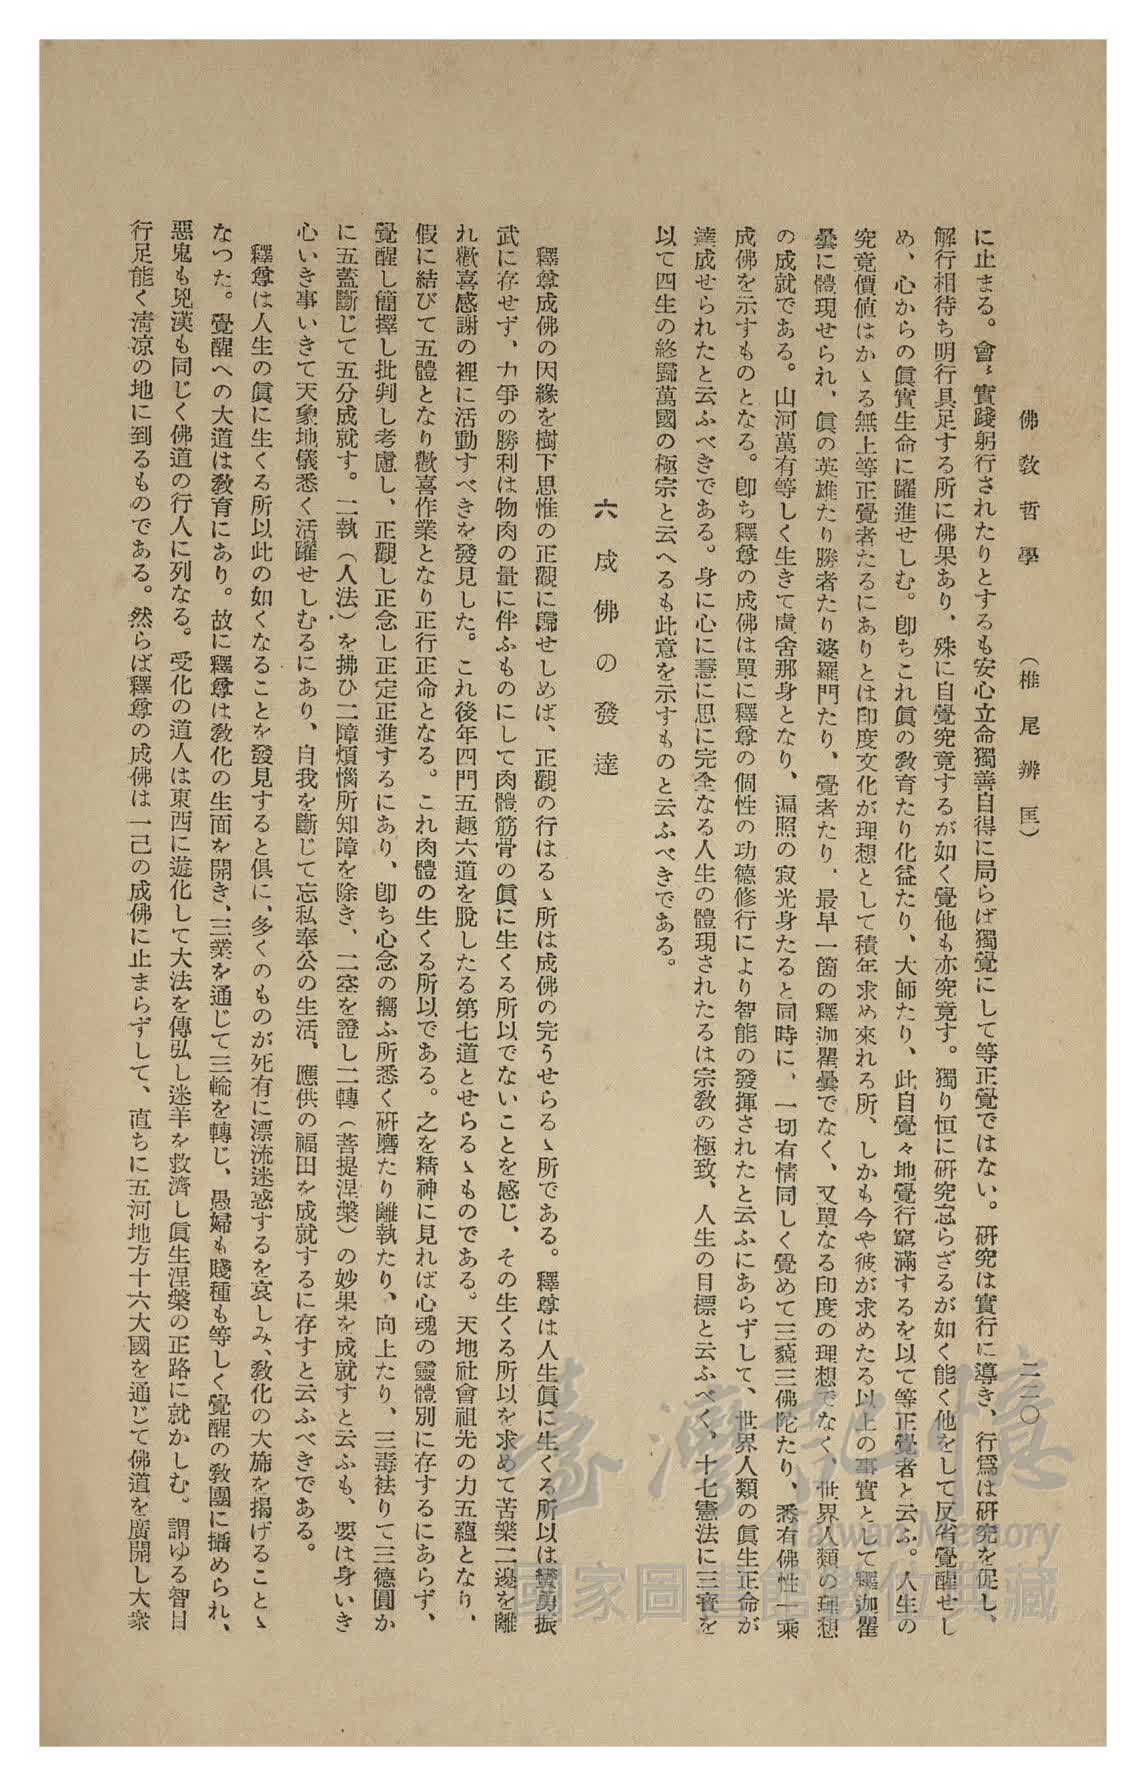 佛敎哲學　（椎尾辨匡）　二二〇
に止まる。會〻實踐躬行されたりとするも安心立命獨善自得に局らば獨覺にして等正覺ではない。硏究は實行に導き、行爲は硏究を促し、
解行相待ち明行具足する所に佛果あり、殊に自覺究竟するが如く覺他も亦究竟す。獨り恒に硏究怠らざるが如く能く他をして反省覺醒せし
め、心からの眞實生命に躍進せしむ。卽ちこれ眞の敎育たり化益たり、大師たり、此自覺々地覺行窮滿するを以て等正覺者と云ふ。人生の
究竟價値はかゝる無上等正覺者たるにありとは印度文化が理想として積年求め來れる所、しかも今や彼が求めたる以上の事實として釋迦瞿
曇に體現せられ、眞の英雄たり勝者たり婆羅門たり、覺者たり、最早一箇の釋迦瞿曇でなく、又單なる印度の理想でなく、世界人類の理想
の成就である。山河萬有等しく生きて盧舍那身となり、遍照の寂光身たると同時に、一切有情同しく覺めて三藐三佛陀たり、悉有佛性一乘
成佛を示すものとなる。卽ち釋尊の成佛は單に釋尊の個性の功德修行により智能の發揮されたと云ふにあらずして、世界人類の眞生正命が
達成せられたと云ふべきである。身に心に慧に思に完全なる人生の體現されたるは宗敎の極致、人生の目標と云ふべく、十七憲法に三寳を
以て四生の終歸萬國の極宗と云へるも此意を示すものと云ふべきである。
六　成佛の發達
釋尊成佛の因緣を樹下思惟の正觀に歸せしめば、正觀の行はるゝ所は成佛の完うせらるゝ所である。釋尊は人生眞に生くる所以は蠻勇振
武に存せず、力爭の勝利は物肉の量に伴ふものにして肉體筋骨の眞に生くる所以でないことを感じ、その生くる所以を求めて苦樂二邊を離
れ歡喜感謝の裡に活動すべきを發見した。これ後年四門五趣六道を脫したる第七道とせらるゝものである。天地社會祖先の力五蘊となり、
假に結びて五體となり歡喜作業となり正行正命となる。これ肉體の生くる所以である。之を精神に見れば心魂の靈體別に存するにあらず、
覺醒し簡擇し批判し考慮し、正觀し正念し正定正進するにあり、卽ち心念の嚮ふ所悉く硏磨たり離執たり、向上たり、三毒祛りて三德圓か
に五蓋斷じて五分成就す。二執（人法）を拂ひ二障煩惱所知障を除き、二空を證し二轉（菩提涅槃）の妙果を成就すと云ふも、要は身いき
心いき事いきて天象地儀悉く活躍せしむるにあり、自我を斷じて忘私奉公の生活、應供の福田を成就するに存すと云ふべきである。
釋尊は人生の眞に生くる所以此の如くなることを發見すると俱に、多くのものが死有に漂流迷惑するを哀しみ、敎化の大旆を揭げることゝ
なつた。覺醒への大道は敎育にあり。故に釋尊は敎化の生面を開き、三業を通じて三輪を轉じ、愚婦も賤種も等しく覺醒の敎團に攝められ、
惡鬼も兇漢も同じく佛道の行人に列なる。受化の道人は東西に遊化して大法を傳弘し迷羊を救濟し眞生涅槃の正路に就かしむ。謂ゆる智目
行足能く淸凉の地に到るものである。然らば釋尊の成佛は一己の成佛に止まらずして、直ちに五河地方十六大國を通じて佛道を廣開し大衆
臺灣記憶
Taiwan Memory
國家圖書館數位典藏